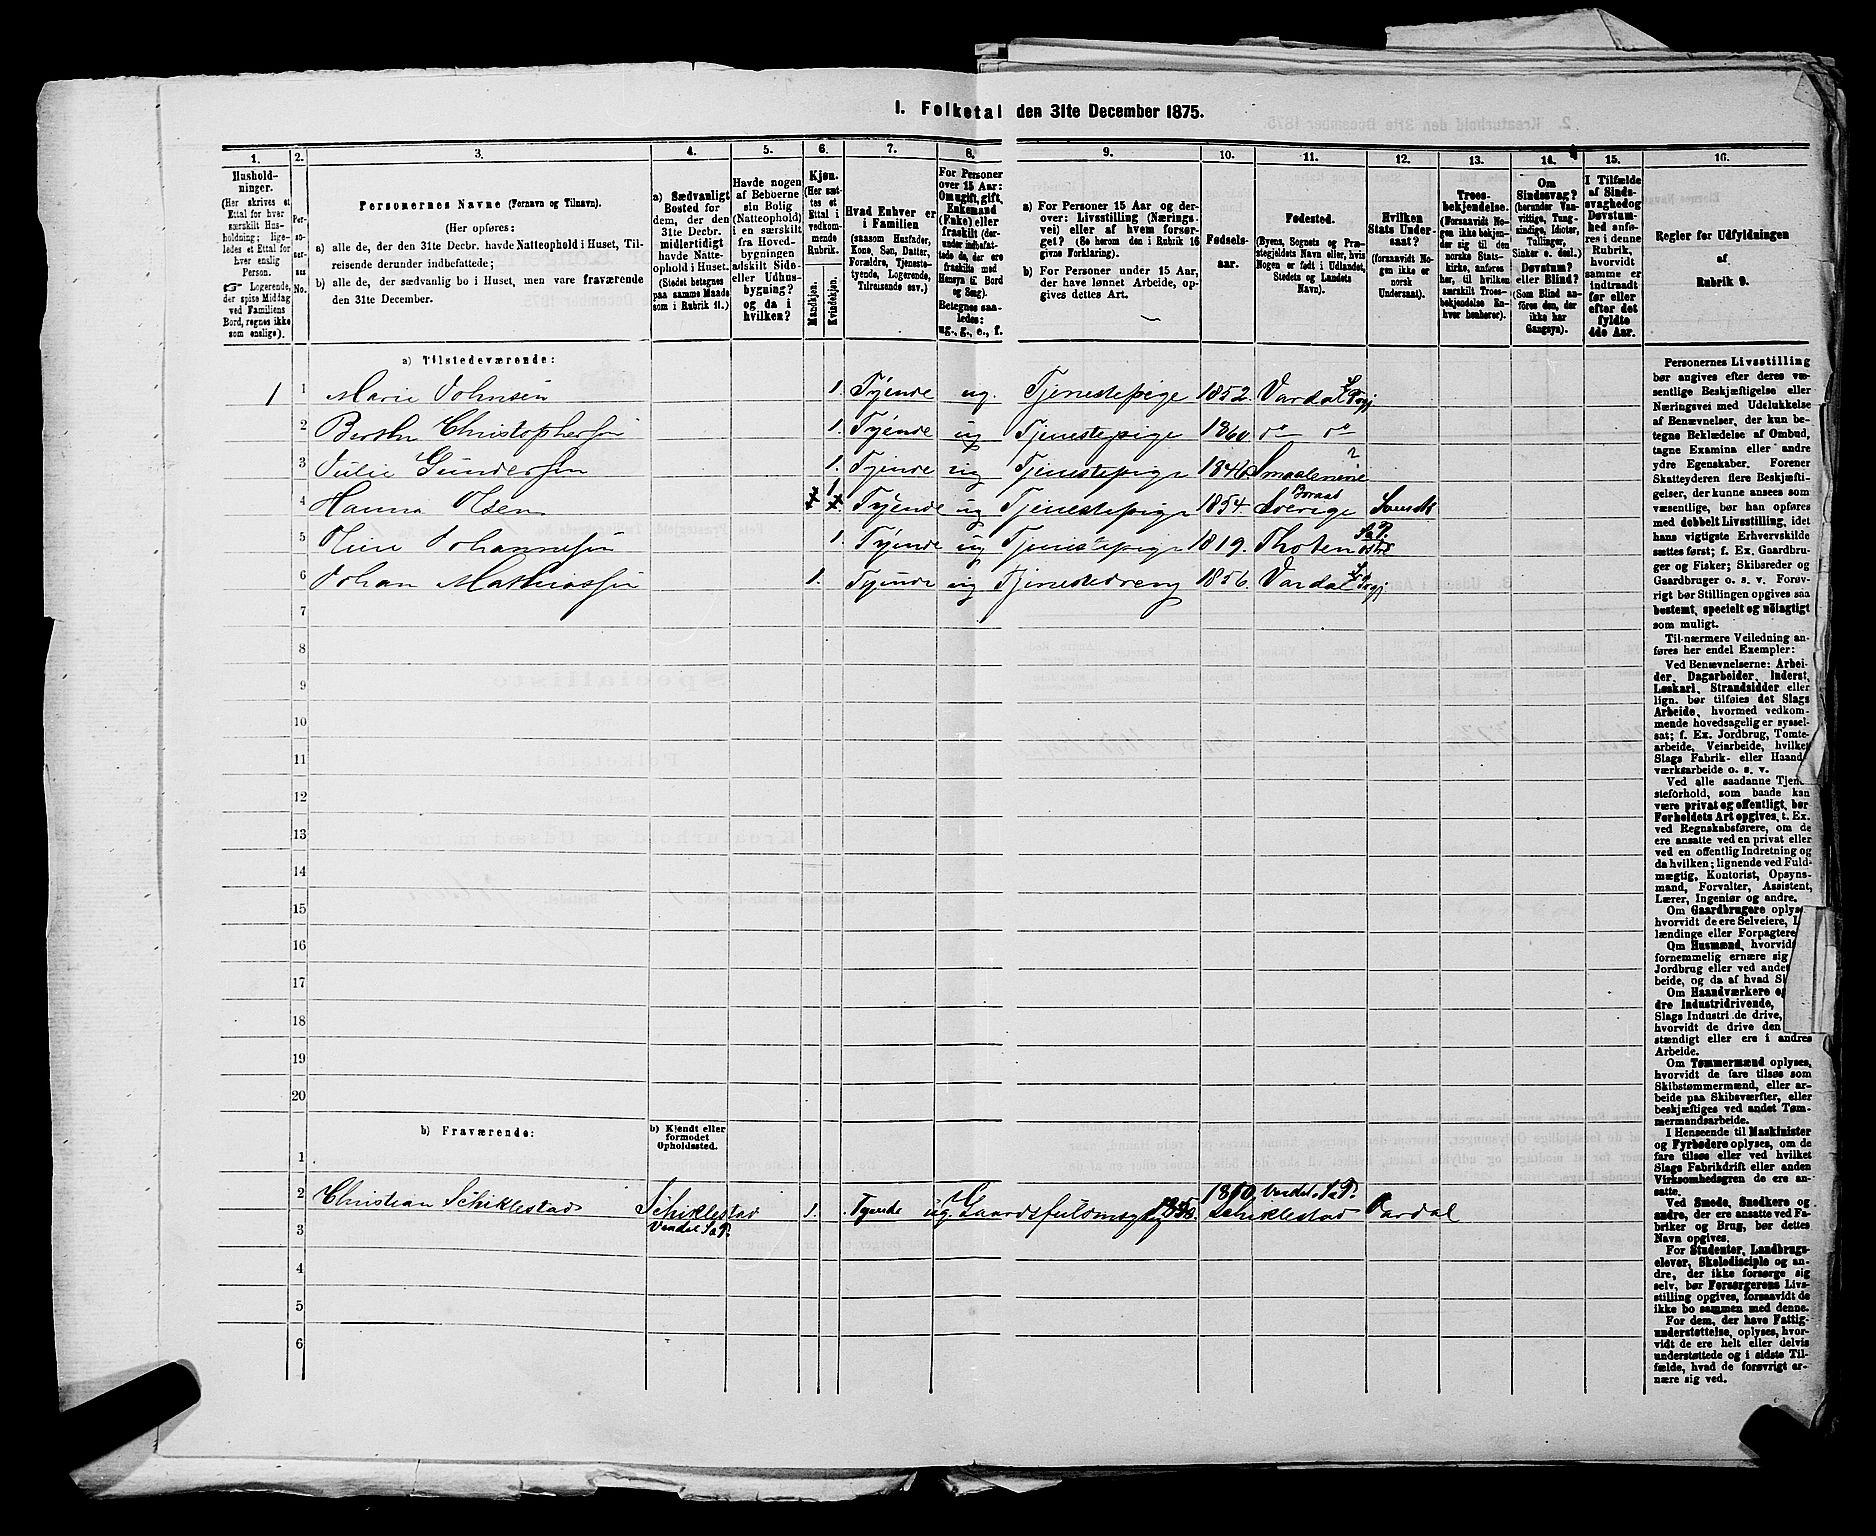 I. Folketal den 31te December 1875.
1. 2. 3. 4. 5. 6. 7. 8. 9. 10. 11. 12. 13. 14. 15. 16.
Hushold-
ninger.
(Her skrives et
Ettal for hver
særskilt Hus-
holdning; lige-
ledes et Ettal for
hver enslig
Person.
☞ Logerende,
der spise Middag
ved Familiens
Bord, regnes ikke
som enslige).
Personernes Navne (Fornavn og Tilnavn).
(Her opføres:
a) alle de, der den 31te Decbr. havde Natteophold i Huset, Til-
reisende derunder indbefattede;
b) alle de, der sædvanlig bo i Huset, men vare fraværende
den 31te December.
a) Sædvanligt
Bosted for
dem, der den
31te Decbr.
midlertidigt
havde Natte-
ophold i Huset.
(Stedet betegnes
paa samme Maade
som i Rubrik 11.)
Havde nogen
af Beboerne
sin Bolig
(Natteophold)
i en særskilt
fra Hoved-
bygningen
adskilt Side-
eller Udhus-
bygning?
og da i
hvilken?
Kjøn.
(Her sæt-
tes et
Ettal i
vedkom-
mende
Rubrik.
Mandkjøn.
Kvindekjøn.
Hvad Enhver er
i Familien
(saasom Husfader,
Kone, Søn, Datter,
Forældre, Tjeneste-
tyende, Logerende,
Tilreisende osv.)
For Personer
over 15 Aar:
Om ugift, gift,
Enkemand
(Enke) eller
fraskilt (der-
under indbefat-
tede de, der ere
fraskilte med
Hensyn til Bord
og Seng).
Betegnes saa-
ledes:
ug., g., e., f.
a) For Personer 15 Aar og der-
over: Livsstilling (Nærings-
vei) eller af hvem forsør-
get? (Se herom den i Rubrik 16
givne Forklaring).
b) For Personer under 15 Aar,
der have lønnet Arbeide, op-
gives dettes Art.
Fødsels-
aar.
Fødested.
(Byens, Sognets og Præ-
stegjeldets Navn eller, hvis
Nogen er født i Udlandet,
Stedets og Landets
Navn).
Hvilken
Stats Under-
saat?
(forsaavidt No-
gen ikke er
norsk
Undersaat).
Troes-
bekjendelse.
(Forsaavidt No-
gen ikke bekjen-
der sig til den
norske Stats-
kirke, anføres
her, til hvilken
særskilt Troes-
bekjendelse En-
hver henhører).
Om
Sindssvag?
(herunder Van-
vittige, Tung-
sindige, Idioter,
Tullinger,
Sinker o. desl.)
Døvstum?
eller Blind?
(Som Blind an-
føres den, der
ikke har
Gangsyn).
I Tilfælde
af Sinds-
svaghed og
Døvstum-
hed anfø-
res i denne
Rubrik,
hvorvidt
samme er
indtraadt
før eller
efter det
fyldte
4de Aar.
Regler for Udfyldningen
af
Rubrik 9.
a) Tilstedeværende:
1 1 Marie Johnsen 1. Tyende ug. Tjenestepige 1852. Vardal
2 Berthe Christophersen 1. Tyende ug Tjenestepige 1860 do do
3 Julie Gundersen 1. Tyende ug Tjenestepige 1846 Smaalenene ?
4 Hanna Olsen 1 Tyende ug Tjenestepige 1854. Boraas Sverige Svensk
5 Johannesen 1. Tyende ug Tjenestepige 1819. Thoten
6 Johan Mathiassen 1. Tyende ug Tjenestedreng 1856. Vardal
7
8
9
10
11
12
13
14
15
16
17
18
19
20
b) Fraværende:
b) Kjendt eller
formodet
Opholdssted.
1
2 Christian Schiklestad Schiklestad 1. Tyende ug. Gaardsfuldmægtig 1850. Vardal S. P.
Vardal S. P. Schiklestad Vardal
3
4
5
6
Personernes Livsstilling
bør angives efter deres væ-
sentlige Beskjæftigelse eller
Næringsvei med Udelukkelse
af Benævnelser, der kun be-
tegne Beklædelse af Ombud,
tagne Examina eller andre
ydre Egenskaber. Forener
Skatteyderen flere Beskjæfti-
gelser, der kunne ansees som
væsentlige, bør han opføres
med dobbelt Livsstilling, idet
hans vigtigste Erhvervskilde
sættes først; f. Ex. Gaardbru-
ger og Fisker; Skibsreder og
Gaardbruger o. s. v. Forøv-
rigt bør Stillingen opgives saa
bestemt, specielt og nøiagtigt
som muligt.
Til nærmere Veiledning an-
føres her endel Exempler:
Ved Benævnelserne: Arbei-
der, Dagarbeider, Inderst,
Løskarl, Strandsidder eller
lign. bør tilføies det Slags
Arbeide, hvormed vedkom-
mende hovedsagelig er syssel-
sat; f. Ex. Jordbrug, Tomte-
arbeide, Veiarbeide, hvilket
Slags Fabrik- eller Haand-
værksarbeide o. s. v.
Ved alle saadanne Tjene-
steforhold, som baade kan
være privat og offentligt, bør
Forholdets Art opgives, t. Ex.
ved Regnskabsførere, om de
ere ansatte ved en privat eller
ved en offentlig Indretning og
da hvilken; lignende ved Fuld-
mægtig, Kontorist, Opsyns-
mand, Forvalter, Assistent,
Lærer, Ingeniør og andre.
Om Gaardbrugere oplyses
hvorvidt de ere Selveiere,
lændinge eller Forpagtere
Om Husmænd, hvorvidt
fornemmelig ernære sig
Jordbrug eller ved andet
beide, og da af hvad
Om Haandværkere og
dre Industridrivende,
Slags Industri de drive,
hvorvidt de drive den
stændigt eller ere i andres
Arbeide.
Om Tømmermænd oplyses,
hvorvidt de fare tilsøs som
Skibstømmermænd, eller ar-
beide paa Skibsværfter, eller
beskjæftiges ved andet Tøm-
mermandsarbeide.
I Henseende til Maskinister
og Fyrbødere oplyses, om de
fare tilsøs eller ved hvilket
Slags Fabrikdrift eller anden
Virksomhed de ere an-
satte.
Ved Smede, Snedkere og
andre, der ere ansatte ved Fa-
briker og Brug, bør dettes
Navn opgives.
For Studenter, Landbrugs-
elever, Skoledisciple og an-
dre, der ikke forsørge sig
selv, bør Forsørgerens Livs-
stilling opgives, forsaavidt de
ikke bo sammen med denne.
For dem, der have Fattig-
understøttelse, oplyses, hvor-
vidt de ere helt eller delvis
understøttede og i sidste Til-
fælde, hvad de forøvrigt er-
nære sig ved.